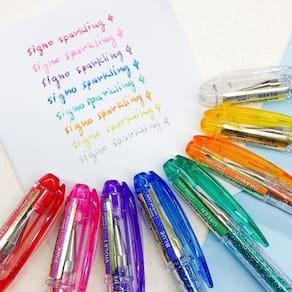 signo sparkling
signo sparkling
signo sparkling
signo sparkling
signo sparkling
signo sparkling
signo sparkling
signo sparkling
VIOLET
BLUE
GREEN
ORANGE